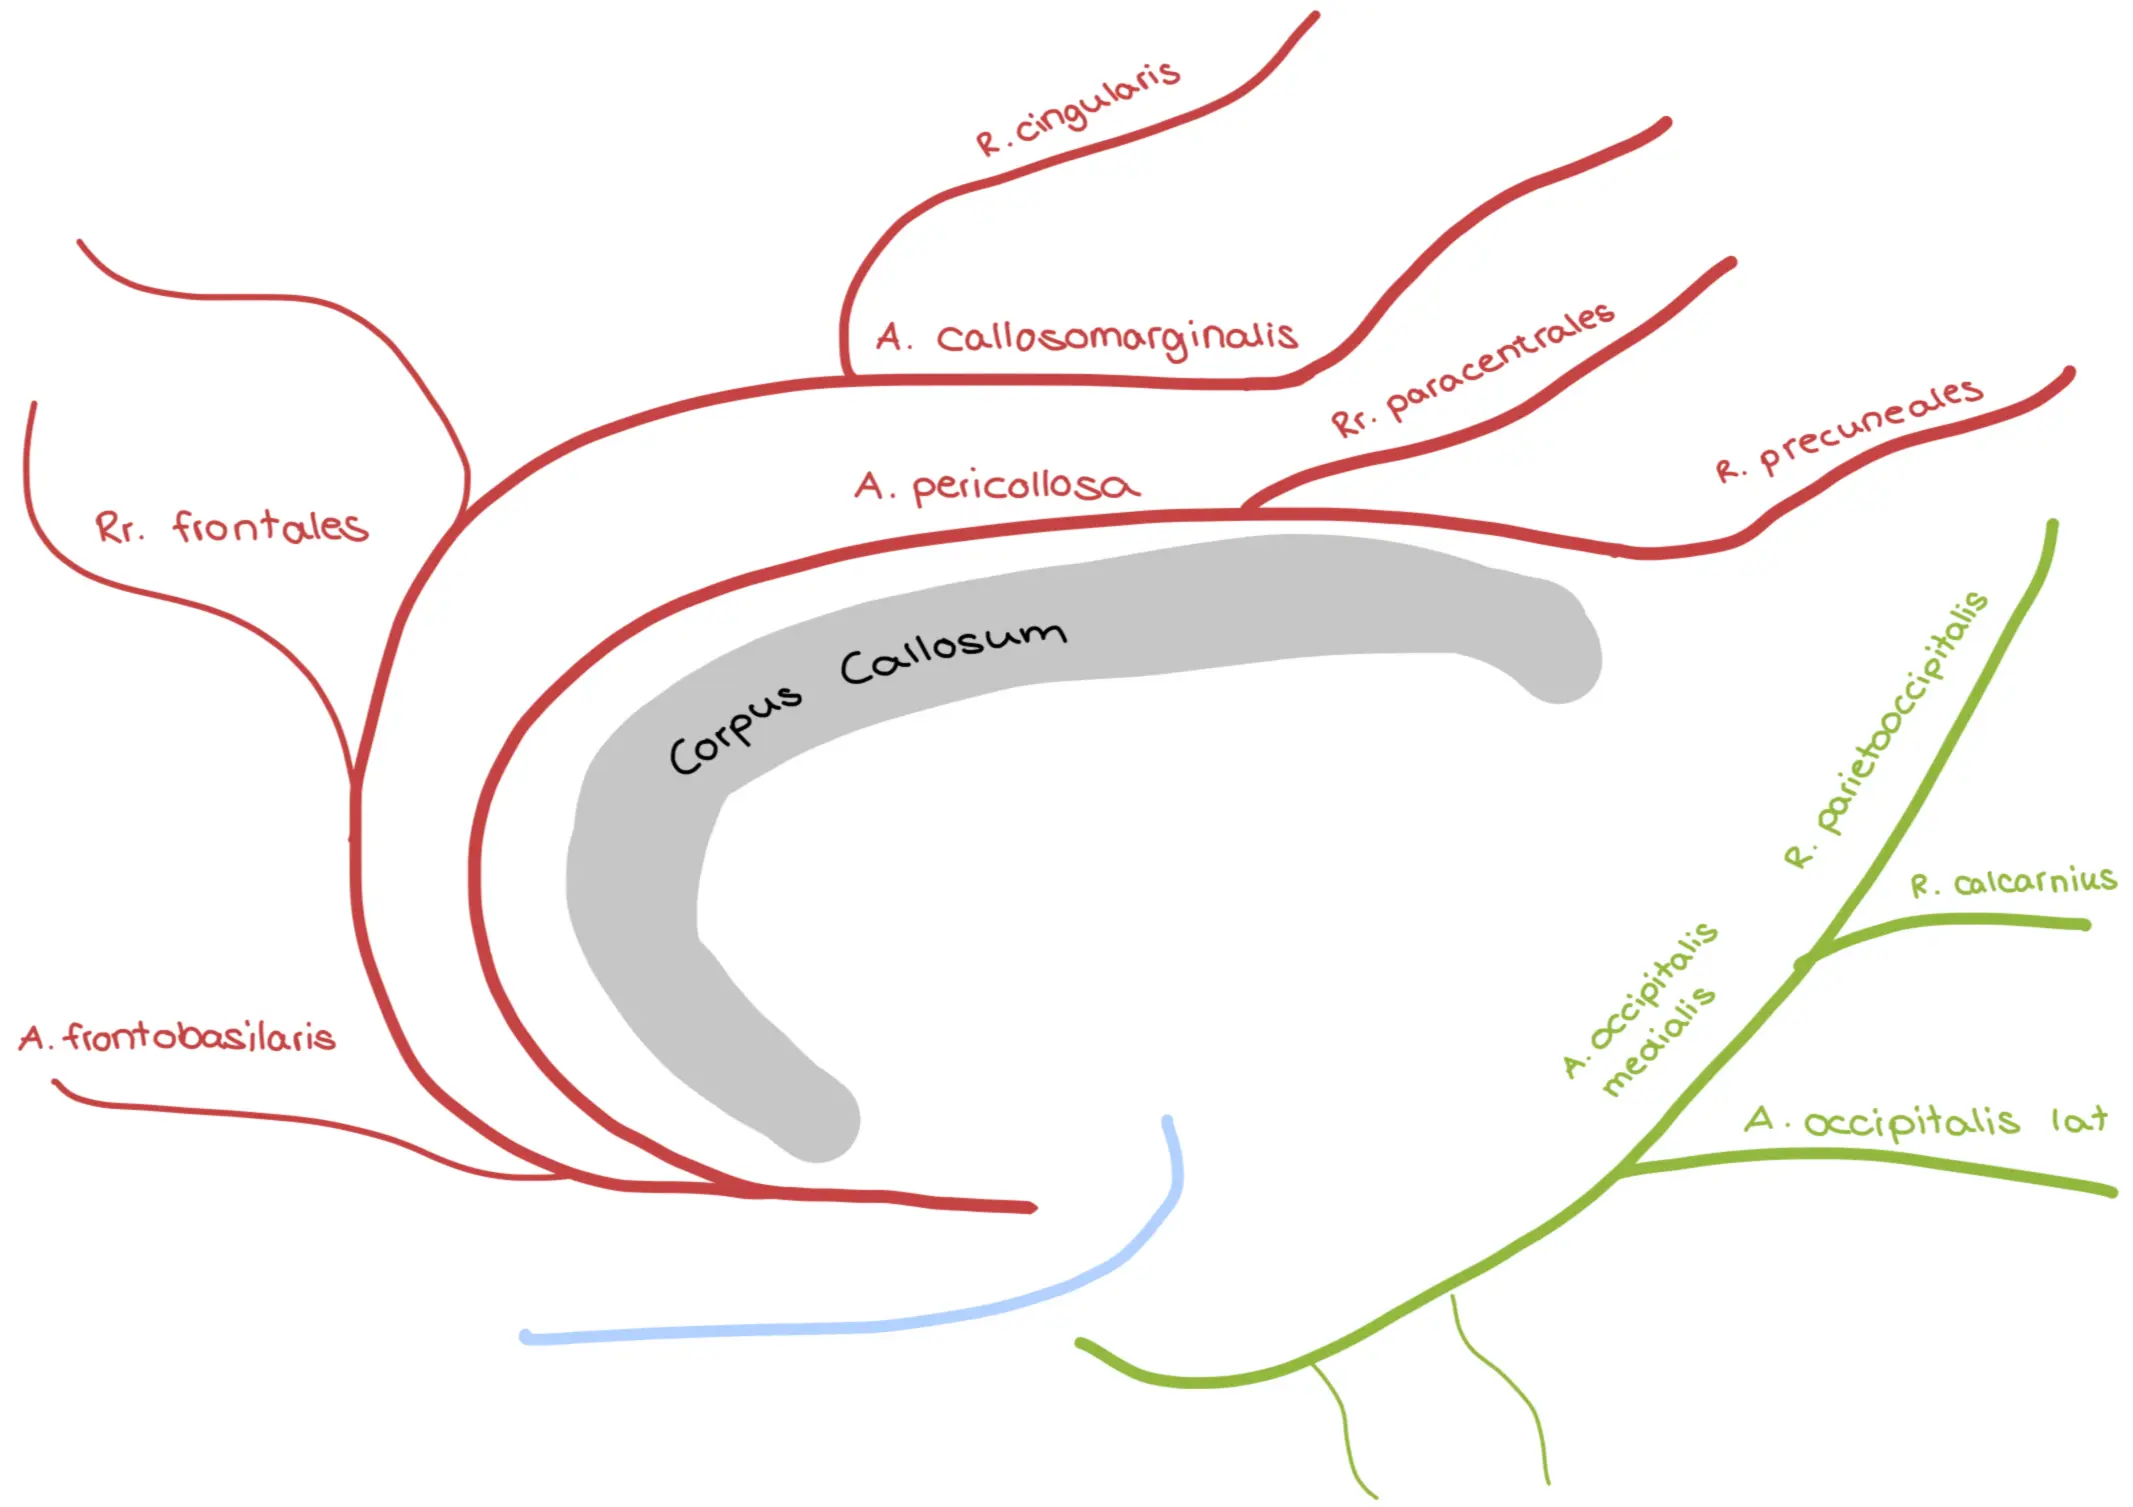 R. cingularis
A. callosomarginalis
Rr. paracentrales
R. precuneales
A. pericollosa
Rr. frontales
Corpus Callosum
R. parietooccipitalis
R. calcarnius
A. occipitalis
medialis
A. occipitalis lat
A. frontobasilaris